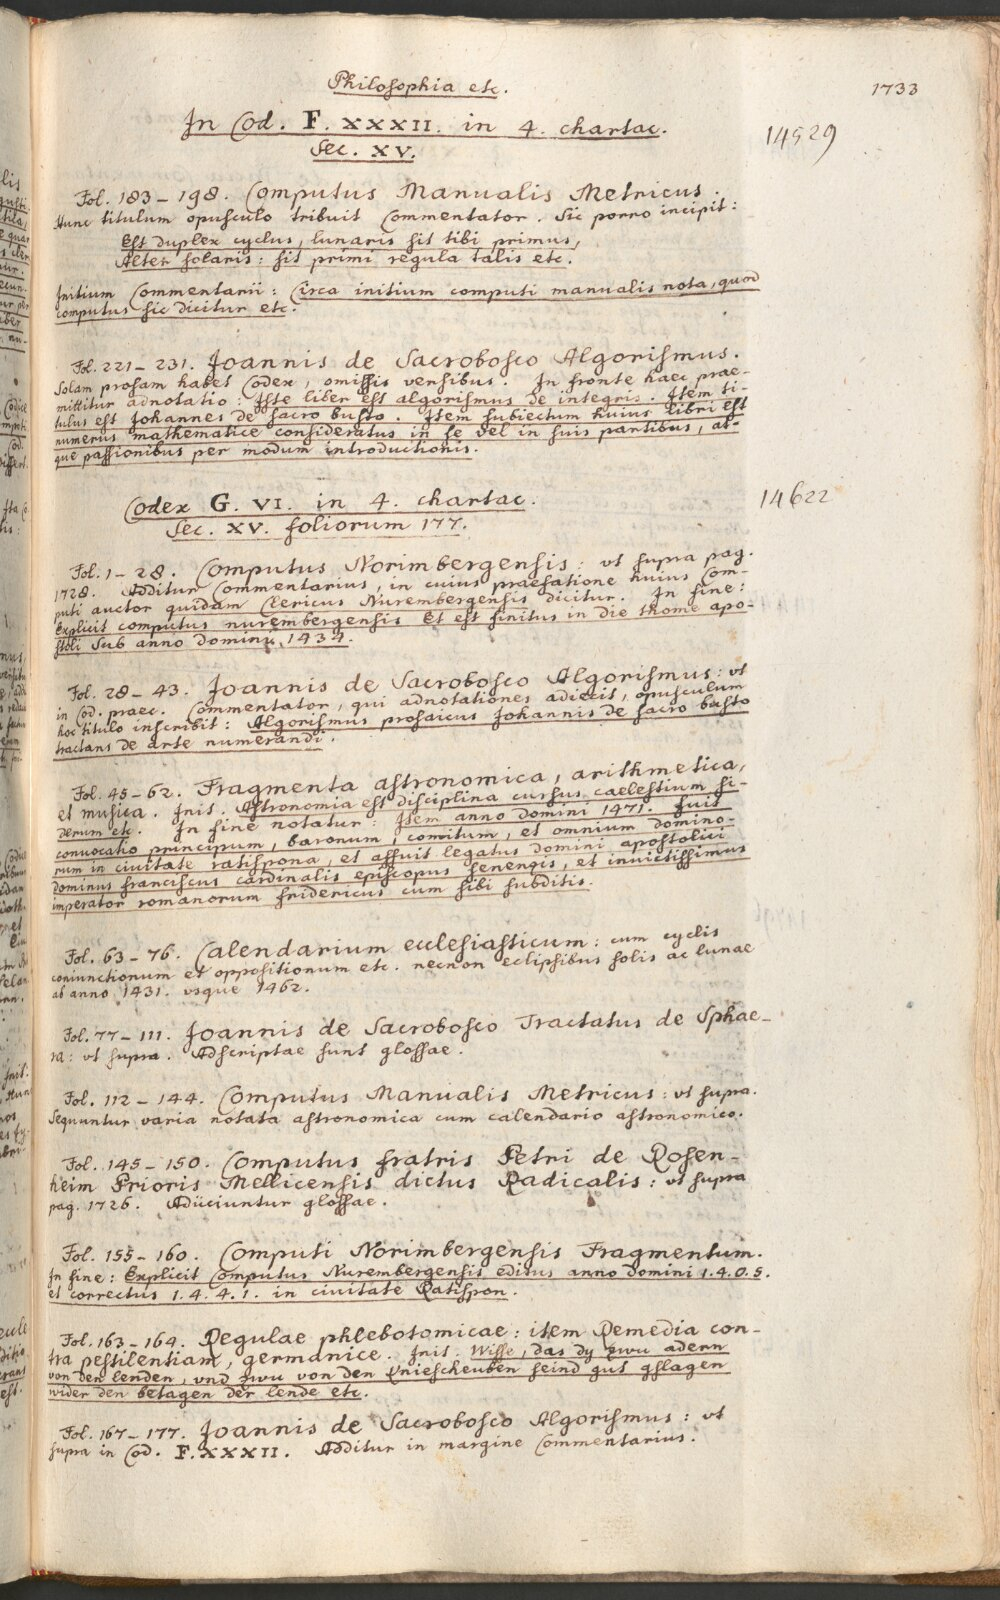 Philosophia etc.
1733
In Cod. F. XXXII. in 4. chartac.
14529
Sec. XV.
Fol. 183 – 198. Computus Manualis Metricus.
Hunc titulum opusculo tribuit Commentator. Sic porro incipit:
Est duplex cyclus, lunaris sit tibi primus,
Alter solaris: sit primi regula talis etc.
Initium Commentarii: Circa initium computi manualis nota, quod
computus sic dicitur etc.
Fol. 221 – 231. Joannis de Sacrobosco Algorismus.
Solam prosam habet Codex, omissis versibus. In fronte haec prae-
mittitur adnotatio: Iste liber est algorismus de integris. Item ti-
tulus est Johannes de sacro busto. Item subiectum huius libri est
numerus mathematice consideratus in se vel in suis partibus, at-
que passionibus per modum introductionis.
Codex G. VI. in 4. chartac.
14622
Sec. XV. foliorum 177.
Fol. 1 – 28. Computus Norimbergensis: vt supra pag.
1728. Additur Commentarius, in cuius praefatione huius Com-
puti auctor quidam Clericus Nurembergensis dicitur. In fine:
Explicit computus nurembergensis Et est finitus in die thome apo-
stoli Sub anno domini 1434.
Fol. 28 – 43. Joannis de Sacrobosco Algorismus: vt
in Cod. praec. Commentator, qui adnotationes adiecit, opusculum
hoc titulo inscribit: Algorismus prosaicus Johannis de sacro busto
tractans de arte numerandi.
Fol. 45 – 62. Fragmenta astronomica, arithmetica,
et musica. Inis. Astronomia est disciplina cursus caelestium si-
derum etc. In fine notatur: Item anno domini 1471. fuit
convocatio principum, baronum, comitum, et omnium domino-
rum in civitate ratispona, et affuit legatus domini apostolici
dominus franciscus cardinalis episcopus senengis, et invictissimus
imperator romanorum fridericus cum sibi subditis.
Fol. 63 – 76. Calendarium ecclesiasticum: cum cyclis
coniunctionum et oppositionum etc. necnon eclipsibus solis ac lunae
ab anno 1431. vsque 1462.
Fol. 77 – 111. Joannis de Sacrobosco Tractatus de Sphae-
ra: vt supra. Adscriptae sunt glossae.
Fol. 112 – 144. Computus Manualis Metricus: vt supra.
Sequuntur varia notata astronomica cum calendario astronomico.
Fol. 145 – 150. Computus fratris Petri de Rosen-
heim Prioris Mellicensis dictus Radicalis: vt supra
pag. 1726. Adiiciuntur glossae.
Fol. 155 – 160. Computi Norimbergensis Fragmentum.
In fine: Explicit Computus Nurembergensis editus anno domini 1.4.0.5.
et correctus 1.4.4.1. in civitate Ratispon.
Fol. 163 – 164. Regulae phlebotomicae: item Remedia con-
tra pestilentiam, germanice. Inis. Wisse, das dy zwu adern
von den lenden, vnd zwu von den Kniescheuben seind gut gslagen
wider den betagen der lende etc.
Fol. 167 – 177. Joannis de Sacrobosco Algorismus: vt
supra in Cod. F. XXXII. Additur in margine Commentarius.